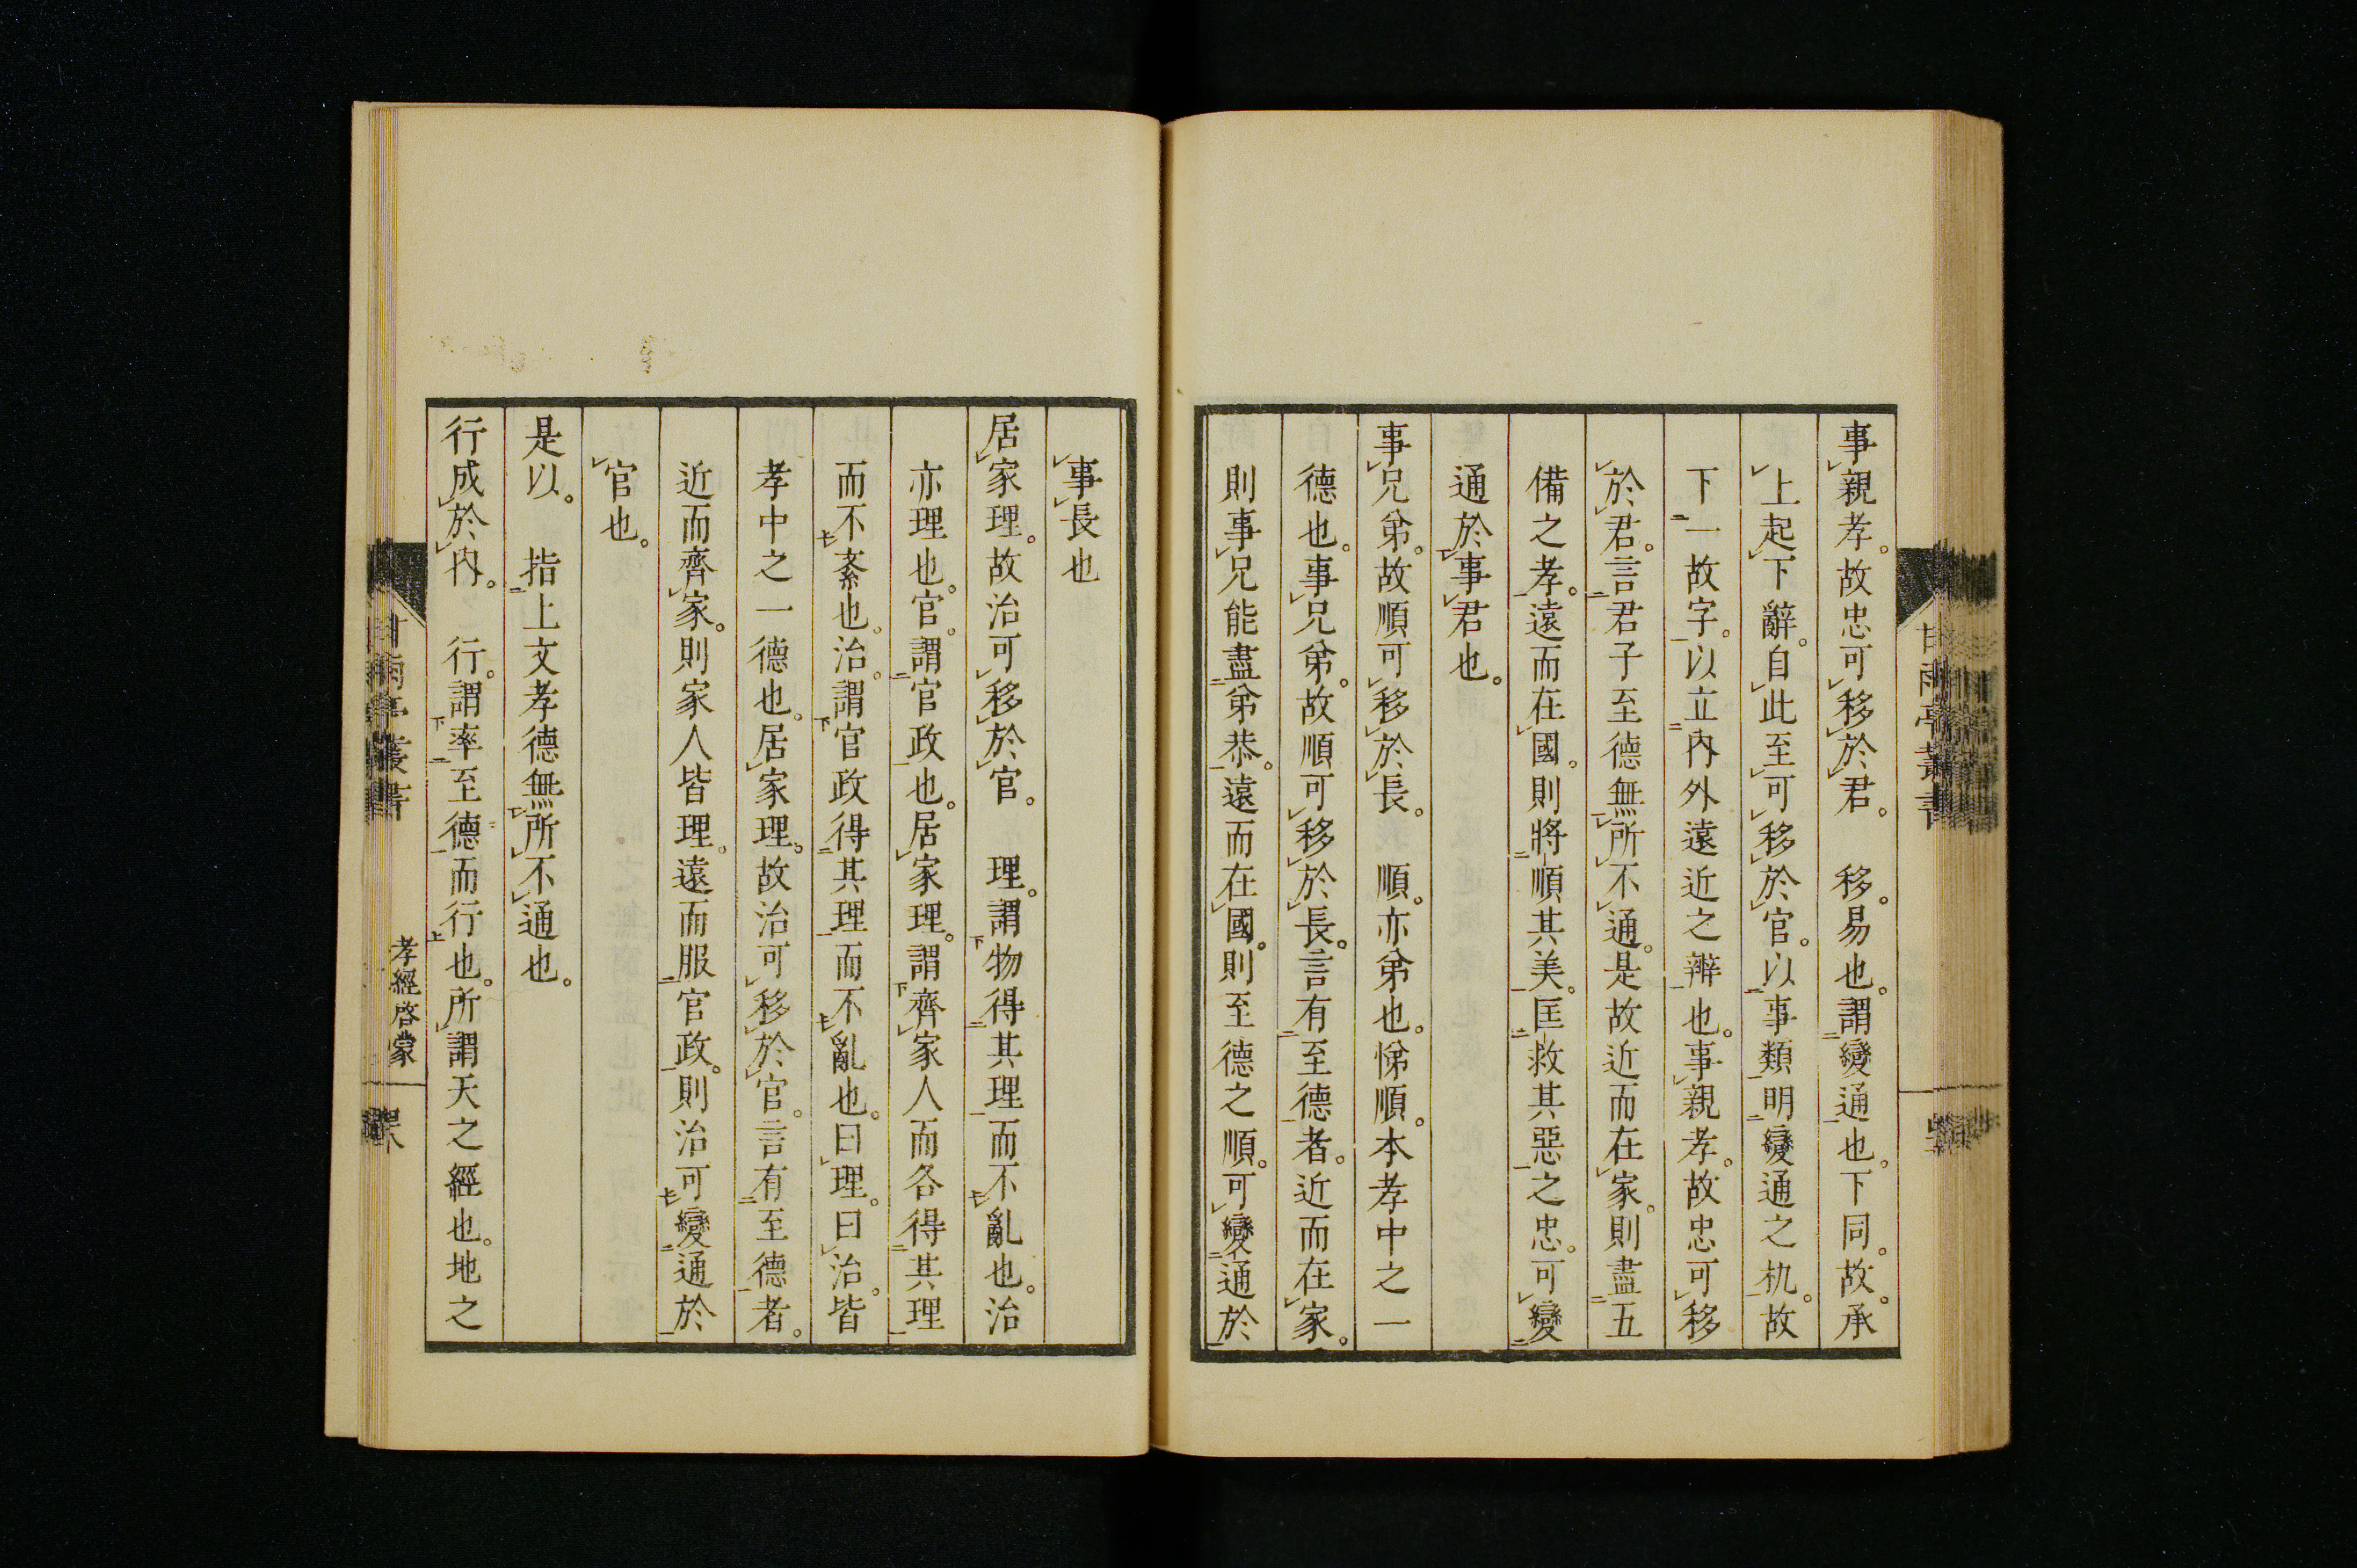 事親孝。故忠可移於君。　移。易也。謂變通也。下同。故。承
上起下辭。自此至可移於官。以事類明變通之机。故
下一故字。以立內外遠近之辨也。事親孝。故忠可移
於君。言君子至德無所不通。是故近而在家。則盡五
備之孝。遠而在國。則將順其美。匡救其惡之忠。可變
通於事君也。
事兄弟。故順可移於長。　順。亦弟也。悌順。本孝中之一
德也。事兄弟。故順可移於長。言有至德者。近而在家。
則事兄能盡弟恭。遠而在國。則至德之順。可變通於
事長也
居家理。故治可移於官。　理。謂物得其理而不亂也。治
亦理也。官。謂官政也。居家理。謂齊家人而各得其理
而不紊也。治。謂官政得其理而不亂也。曰理。曰治。皆
孝中之一德也。居家理。故治可移於官。言有至德者。
近而齊家。則家人皆理。遠而服官政。則治可變通於
官也。
是以。　指上文孝德無所不通也。
行成於內。　行。謂率至德而行也。所謂天之經也。地之
甘雨亭叢書
孝經啓蒙